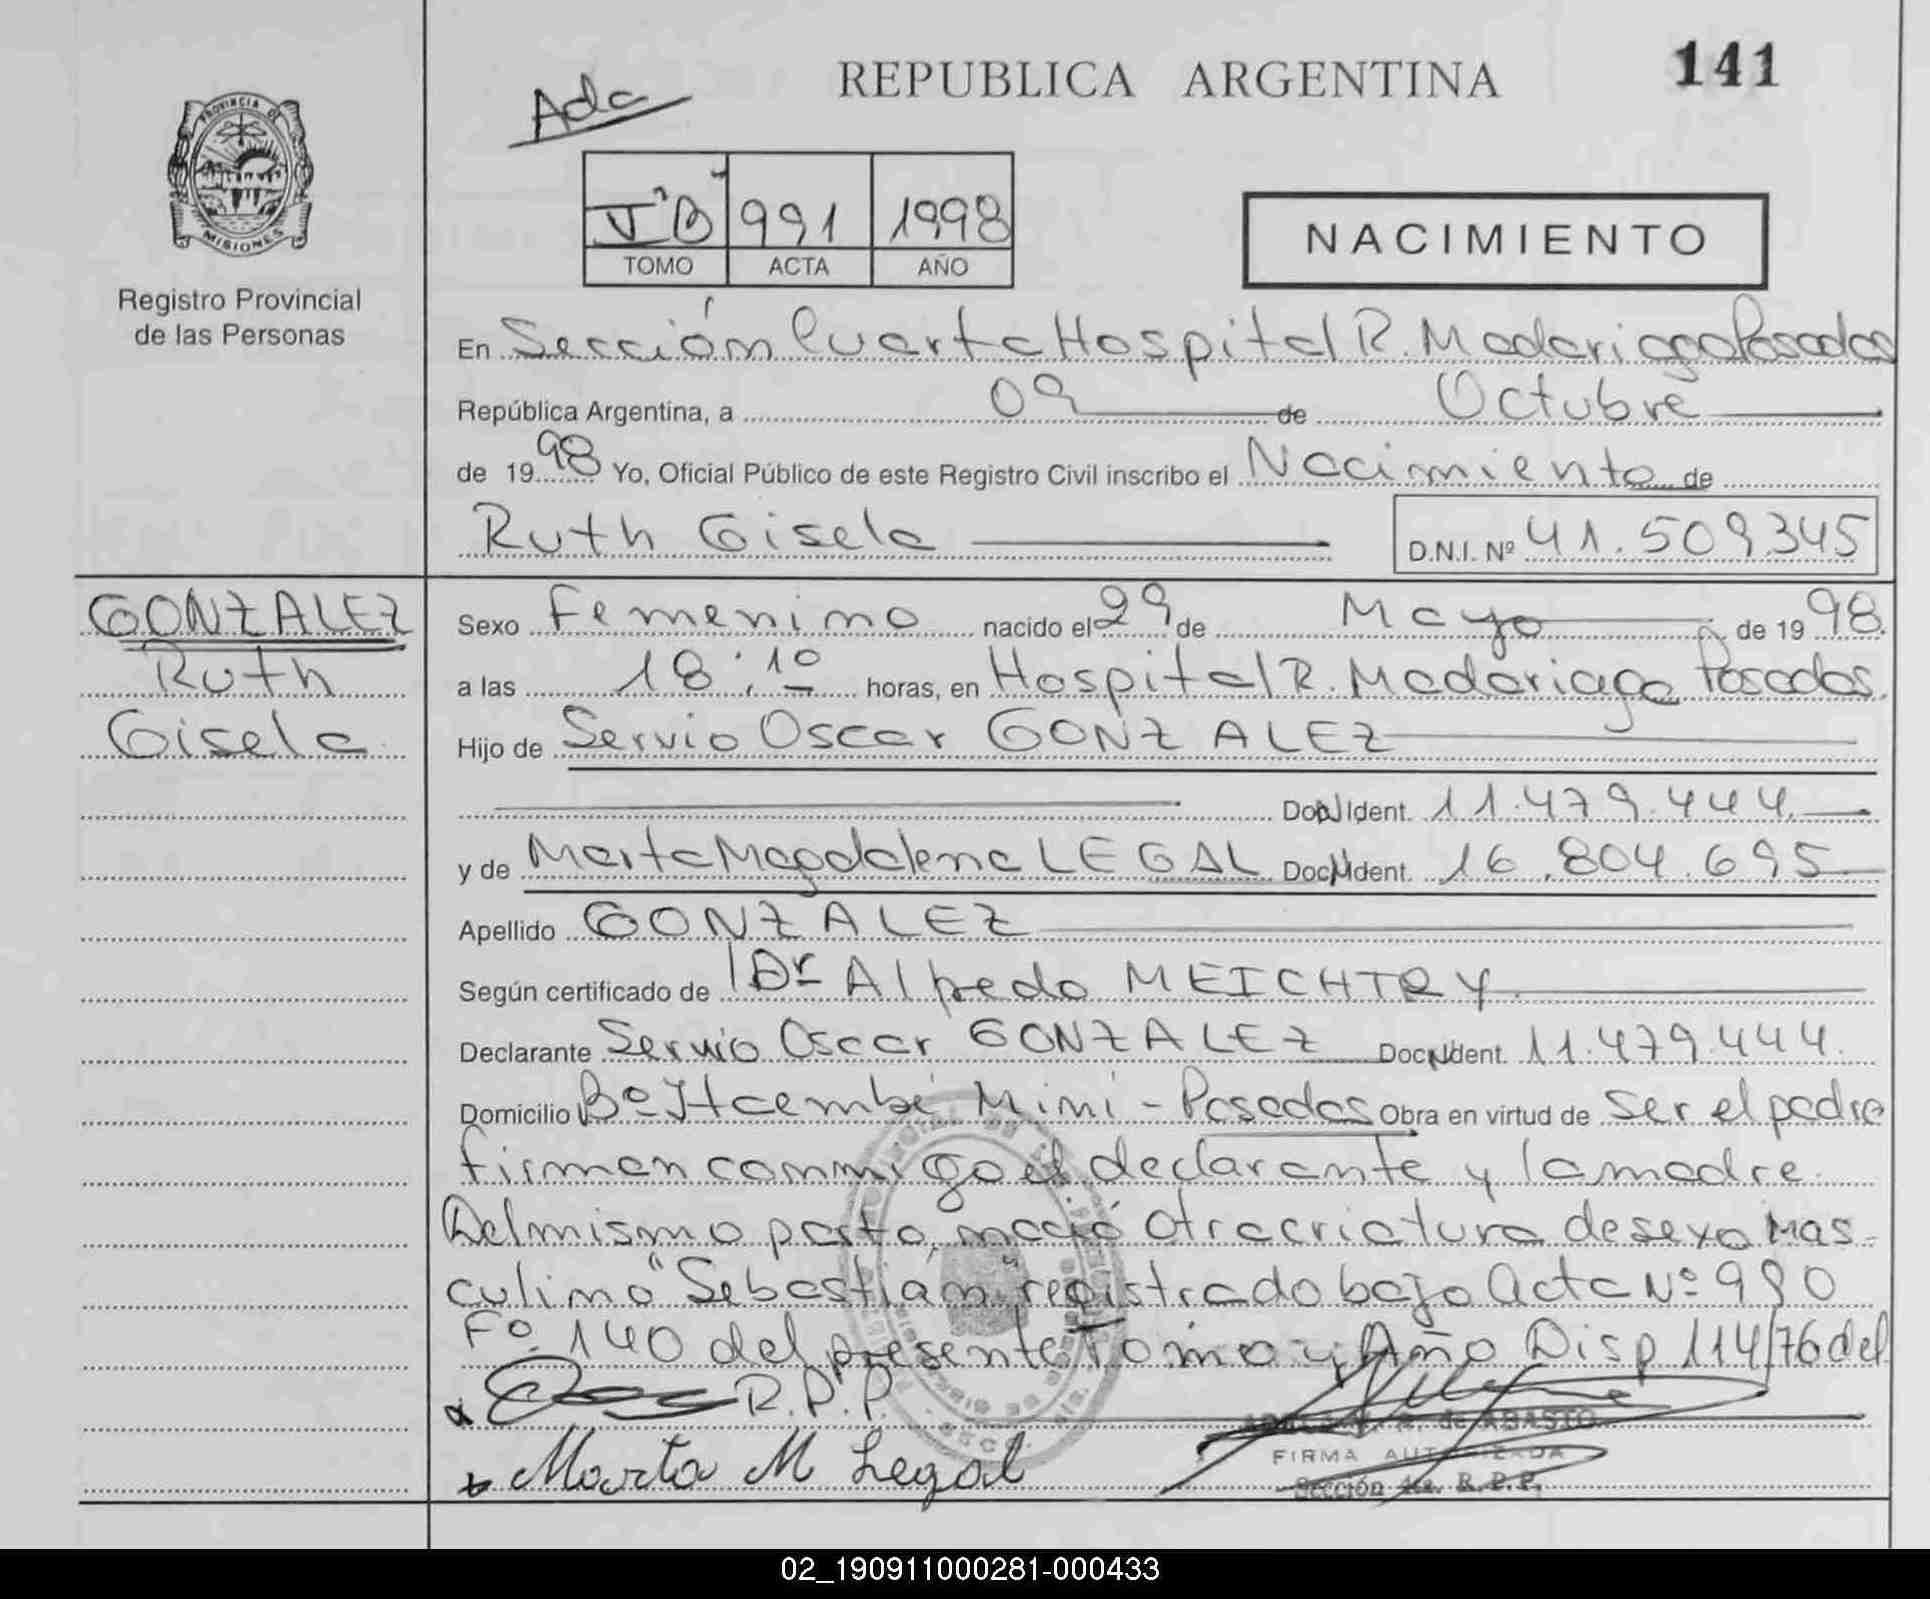 REPUBLICA ARGENTINA
141
Ada
PROVINCIA DE
MISIONES
Registro Provincial
de las Personas
991 1998
TOMO ACTA AÑO
NACIMIENTO
En Sección Cuarta Hospital R. Madariaga Posadas
República Argentina, a 09 de Octubre
de 1998 Yo, Oficial Público de este Registro Civil inscribo el Nacimiento de
Ruth Gisela D.N.I. Nº 41.509.345
GONZALEZ
Ruth
Gisela
Sexo Femenino nacido el 29 de Mayo de 1998.
a las 18:10 horas, en Hospital R. Madariaga Posadas.
Hijo de Servio Oscar GONZALEZ
Ident. 11.479.444.
y de Marta Magdalena LEGAL Ident. 16.804.695
Apellido GONZALEZ
Según certificado de Dr Alfredo MEICHTRY.
Declarante Servio Oscar GONZALEZ Ident. 11.479.444.
Domicilio Bº Itaembé Mini - Posadas Obra en virtud de ser el padre
firman conmigo el declarante y la madre.
Del mismo parto, nació otra criatura de sexo Mas-
culino "Sebastián" registrado bajo Acta Nº 990
Fº 140 del presente Tomo y Año Disp 114/76 del
R.P.P.
de ABASTO
FIRMA AUTORIZADA
Sección 4ta. R.P.P.
Marta M Legal
02_190911000281-000433